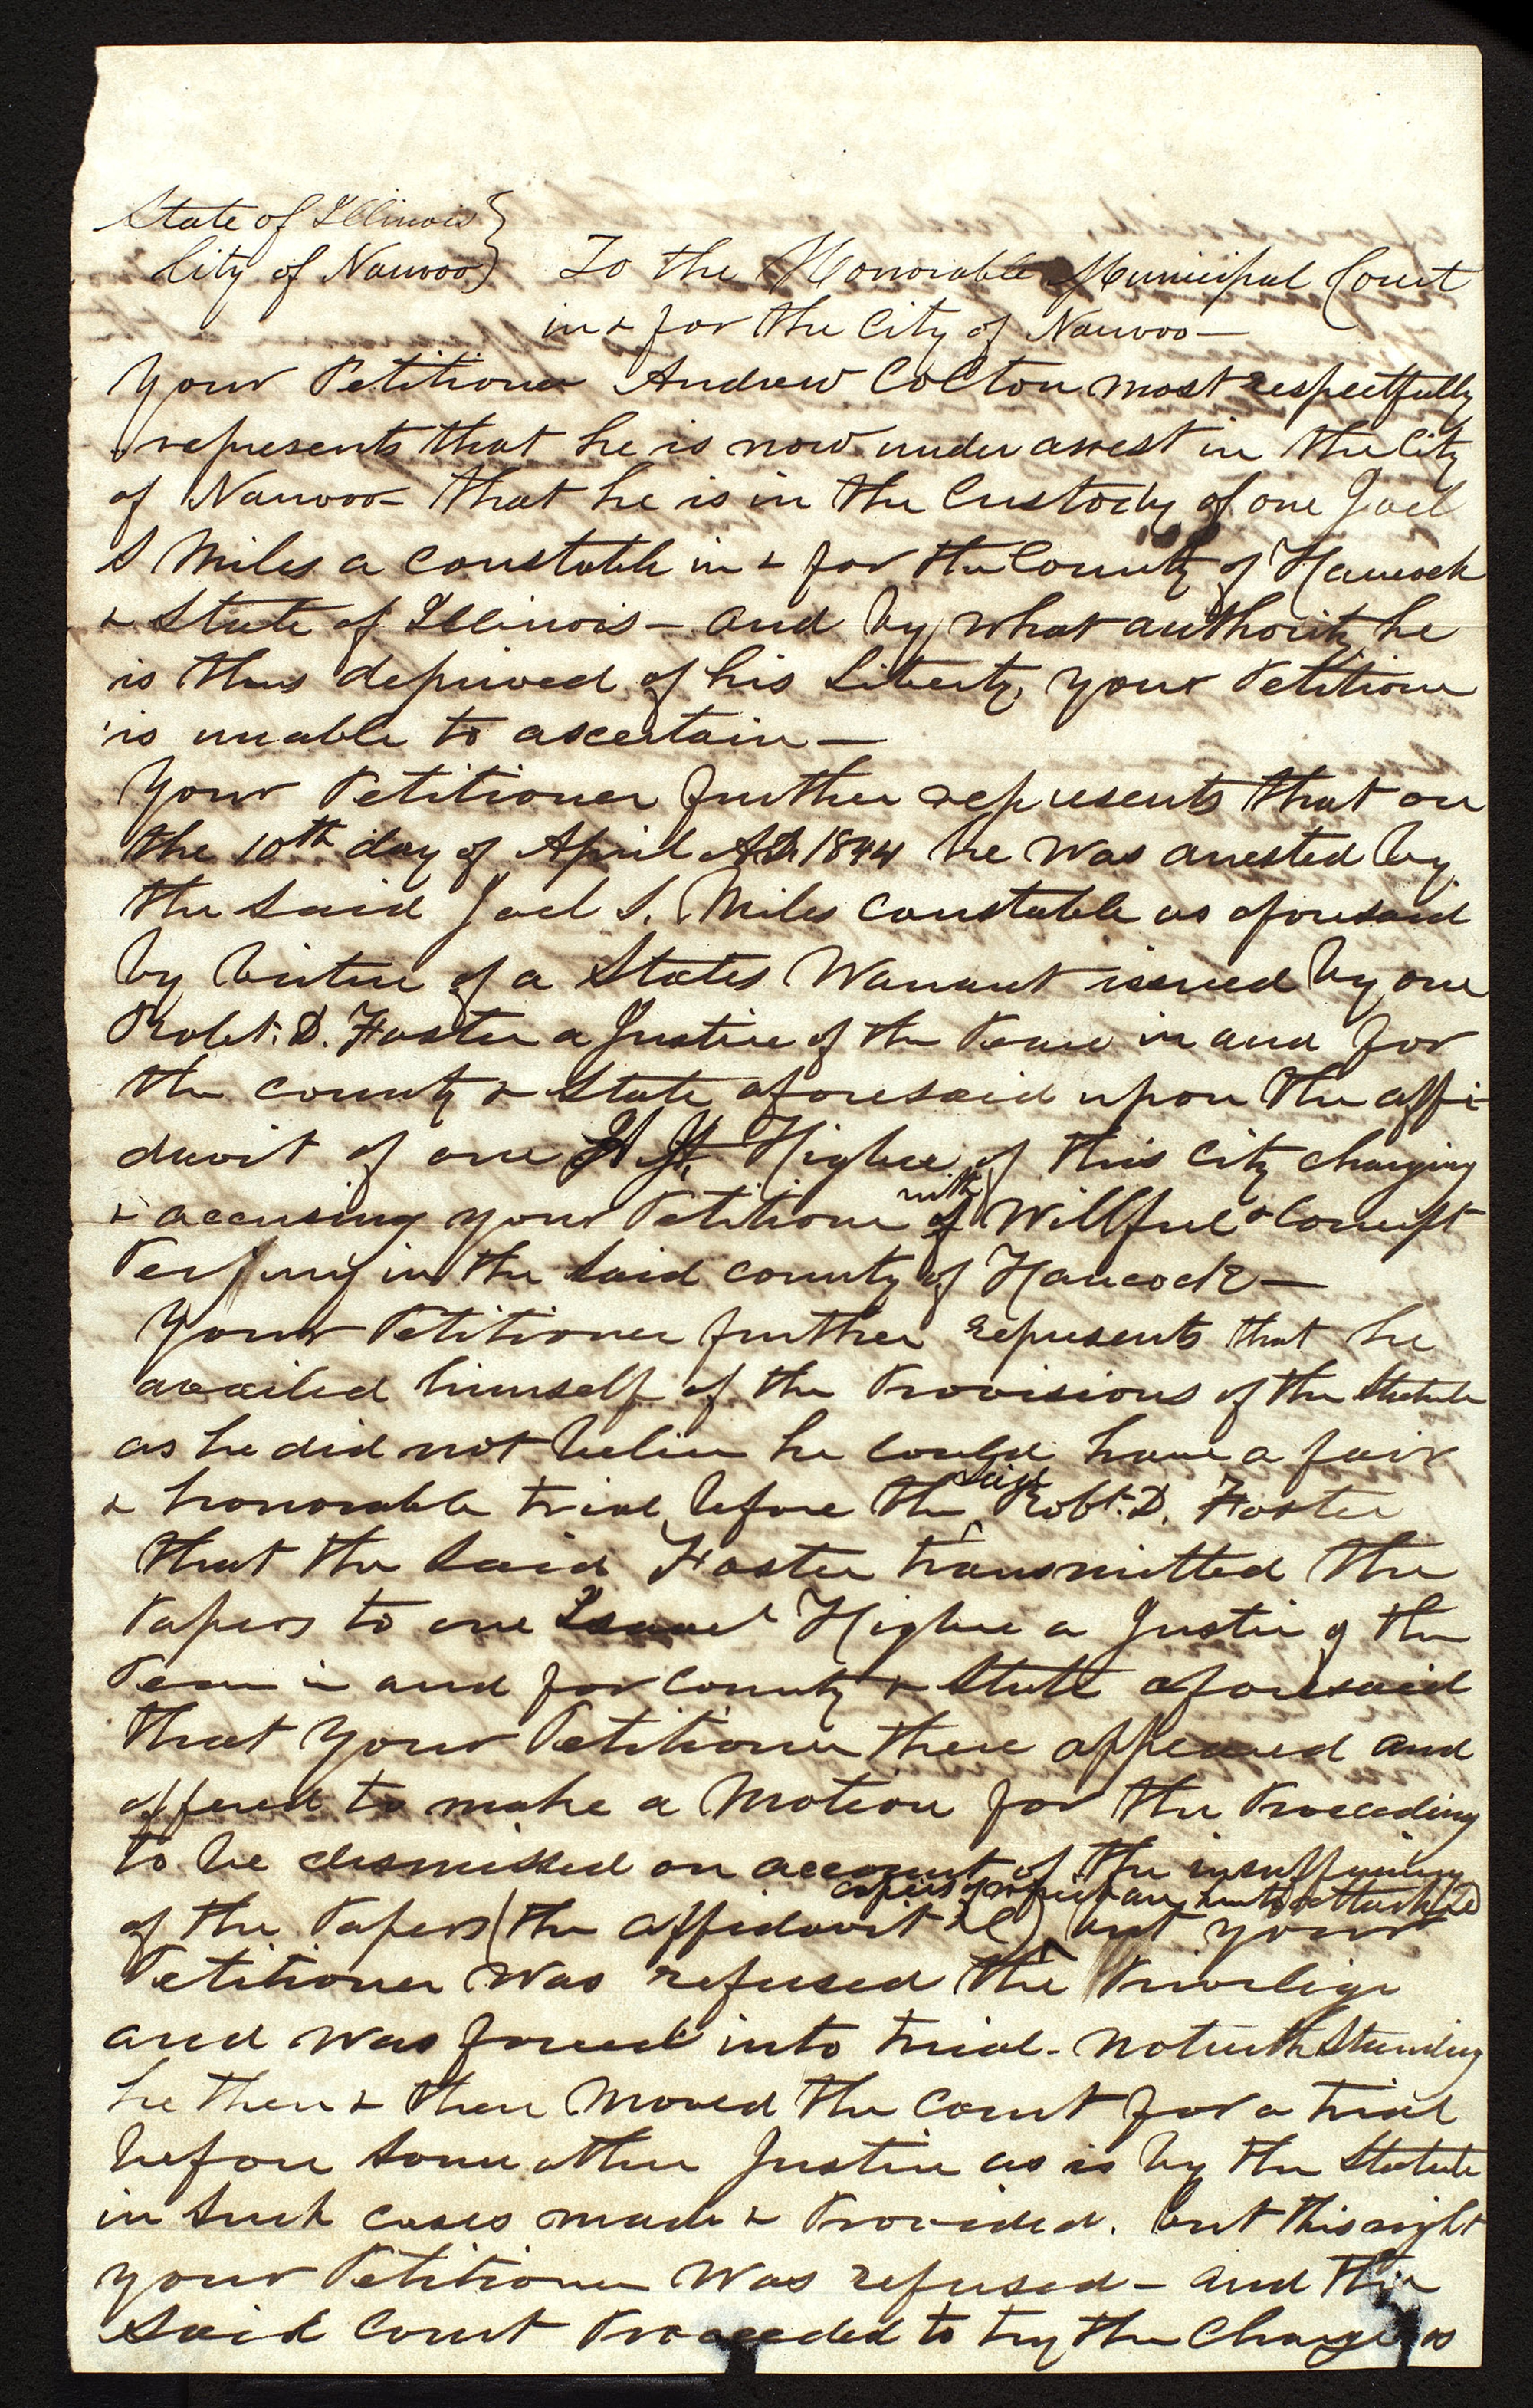 State of Illinois }
City of Nauvoo } To the Honorable Municipal Court
in & for the City of Nauvoo—
Your Petitioner Andrew Colton most respectfully
represents that he is now under arrest in the City
of Nauvoo— that he is in the Custody of one Joel
S Miles a constable in & for the County of Hancock
& State of Illinois— and by what authority he
is thus deprived of his Liberty, your Petitioner
is unable to ascertain—
Your Petitioner further represents that on
the 10th day of April AD 1844 he was arrested by
the said Joel S. Miles constable as aforesaid
by virtue of a States Warrant issued by one
Robt. D. Foster a Justice of the Peace in and for
the county & State aforesaid upon the affi-
davit of one Higbee of this City charging
& accusing your Petitioner with Willful & Corrupt
Perjury in the said county of Hancock—
Your Petitioner further represents that he
availed himself of the Provisions of the Statute
as he did not believe he could have a fair
& honorable trial before the said Robt. D. Foster
that the said Foster transmitted the
Papers to one Isaac Higbee a Justice of the
Peace in and for County & State aforesaid
that your Petitioner there appeared and
offered to make a Motion for the Proceeding
to be dismissed on account of the insufficiency
copies of which are hereto attached
of the Papers (the affidavit &c) but your
Petitioner was refused the Privilege
and was forced into trial- notwithstanding
he then & there moved the Court for a trial
before some other Justice as is by the Statute
in such cases made & Provided. but this right
your Petitioner was refused— and the
said Court Proceeded to try the Charge as